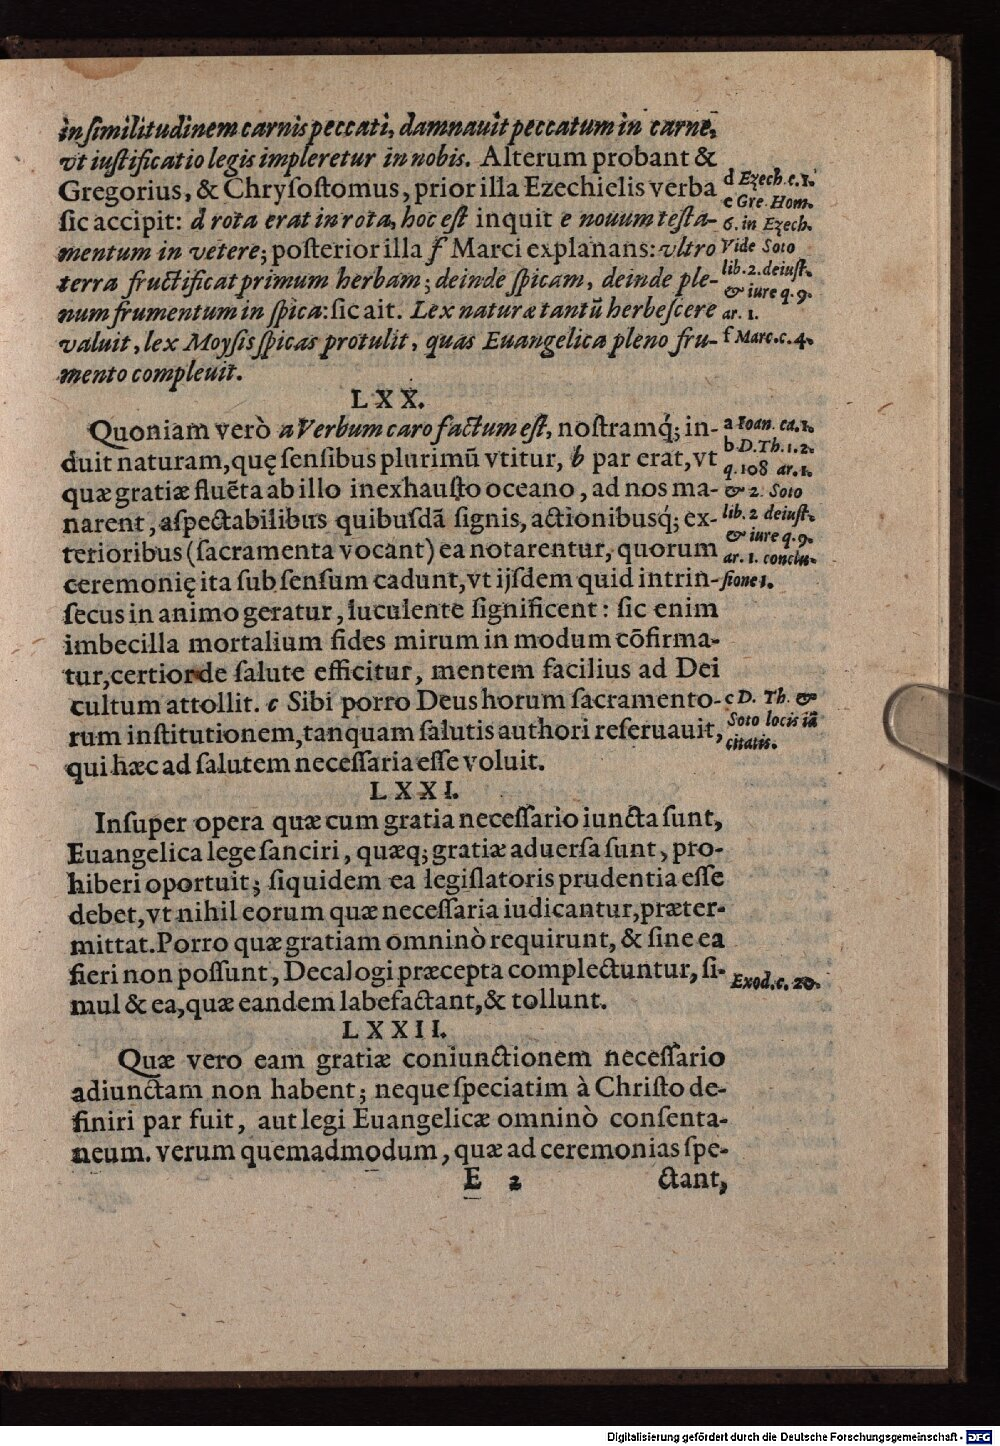 in ſimilitudinem carnis peccati, damnauit peccatum in carne,
vt iuſtificatio legis impleretur in nobis. Alterum probant &
Gregorius, & Chryſoſtomus, prior illa Ezechielis verba
ſic accipit: d rota erat in rota, hoc eſt inquit e nouum teſta-
mentum in vetere; poſterior illa f Marci explanans: vltro
terra fructificat primum herbam; deinde ſpicam, deinde ple-
num frumentum in ſpica: ſic ait. Lex naturæ tantũ herbeſcere
valuit, lex Moyſis ſpicas protulit, quas Euangelica pleno fru-
mento compleuit.
d Ezech. c. 1.
e Gre. Hom.
6. in Ezech.
Vide Soto
lib. 2. de iuſt.
& iure q. 9.
ar. 1.
f Marc. c. 4.
LXX.
Quoniam verò a Verbum caro factum eſt, noſtramq́; in-
duit naturam, quę ſenſibus plurimũ vtitur, b par erat, vt
quæ gratiæ fluẽta ab illo inexhauſto oceano, ad nos ma-
narent, aſpectabilibus quibuſdã ſignis, actionibusq́; ex-
terioribus (ſacramenta vocant) ea notarentur, quorum
ceremonię ita ſub ſenſum cadunt, vt ijſdem quid intrin-
ſecus in animo geratur, luculente ſignificent: ſic enim
imbecilla mortalium fides mirum in modum cõfirma-
tur, certior de ſalute efficitur, mentem facilius ad Dei
cultum attollit. c Sibi porro Deus horum ſacramento-
rum inſtitutionem, tanquam ſalutis authori reſeruauit,
qui hæc ad ſalutem neceſſaria eſſe voluit.
a Ioan. ca. 1.
b D. Th. 1. 2.
q. 108 ar. 1.
& 2. Soto
lib. 2 de iuſt.
& iure q. 9.
ar. 1. conclu-
ſione 1.
c D. Th. &
Soto locis iã
citatis.
LXXI.
Inſuper opera quæ cum gratia neceſſario iuncta ſunt,
Euangelica lege ſanciri, quæq; gratiæ aduerſa ſunt, pro-
hiberi oportuit; ſiquidem ea legiſlatoris prudentia eſſe
debet, vt nihil eorum quæ neceſſaria iudicantur, præter-
mittat. Porro quæ gratiam omninò requirunt, & ſine ea
fieri non poſſunt, Decalogi præcepta complectuntur, ſi-
mul & ea, quæ eandem labefactant, & tollunt.
Exod. c. 20.
LXXII.
Quæ vero eam gratiæ coniunctionem neceſſario
adiunctam non habent; neque ſpeciatim à Chriſto de-
finiri par fuit, aut legi Euangelicæ omninò conſenta-
neum. verum quemadmodum, quæ ad ceremonias ſpe-
E 2 ctant,
Digitalisierung gefördert durch die Deutsche Forschungsgemeinschaft - DFG